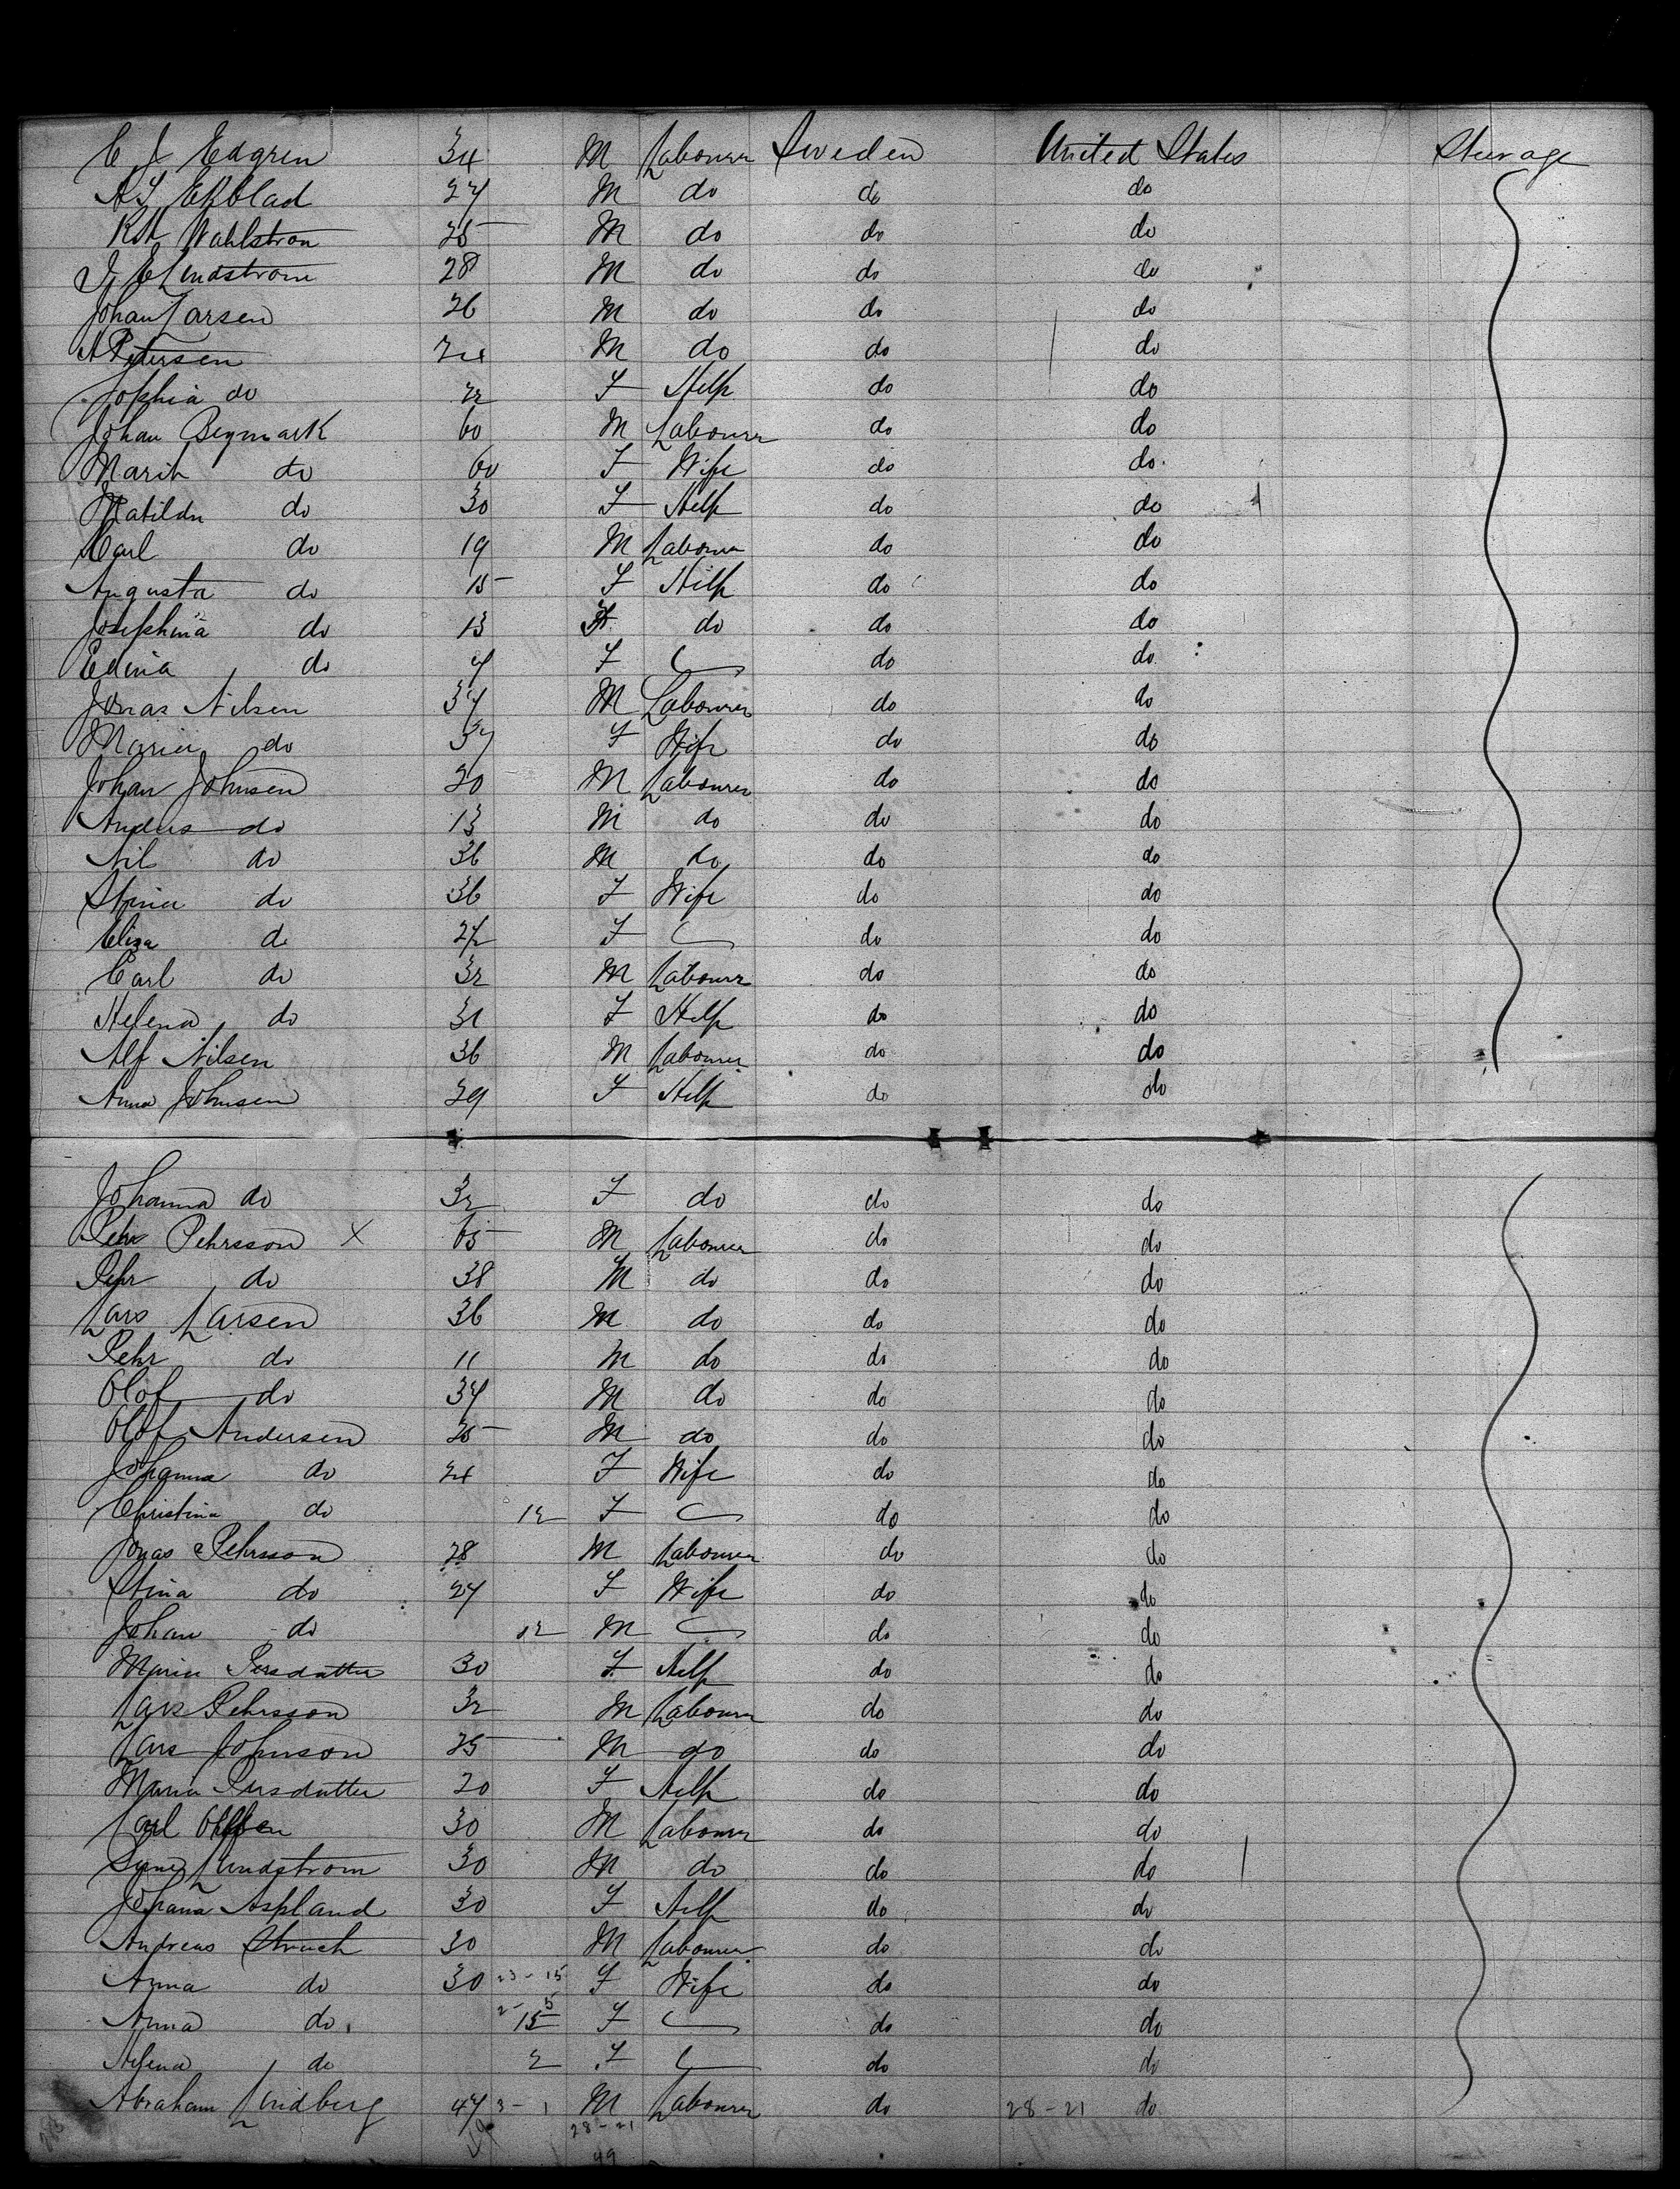 C J Edgren 34 M Labourer Sweden United States Steerage
A L Ekblad 27 M do do do
K A Wahlstron 25 M do do do
J E Lindstrom 28 M do do do
Johan Larsen 26 M do do do
A Petersen 24 M do do do
Sophia do 22 F Help do do
Johan Bergmark 60 M Labourer do do
Marih do 60 F Wife do do
Matilda do 30 F Help do do
Carl do 19 M Labourer do do
Augusta do 15 F Help do do
Josephina do 13 F do do do
Edina do 7 F do do
Jonas Nilsen 37 M Labourer do do
Maria do 37 F Wife do do
Johan Johnsen 20 M Labourer do do
Anders do 13 M do do do
Nil do 36 M do do do
Stina do 36 F Wife do do
Eliza do F do do
Carl do 32 M Labourer do do
Helena do 31 F Help do do
Alf Nilsen 36 M Labourer do do
Anna Johnsen 29 F Help do do
Johanna do 32 F do do do
Pehr Pehrsson X 65 M Labourer do do
Pehr do 38 M do do do
Lars Larsen 36 M do do do
Pehr do 11 M do do do
Olof do 37 M do do do
Olof Andersen 25 M do do do
Johanna do 24 F Wife do do
Christina do 12 F do do
Jonas Pehrsson 28 M Labourer do do
Stina do 27 F Wife do do
Johan do M do do
Maria Persdatter 30 F Help do do
Lars Pehrsson 32 M Labourer do do
Lars Johnson 25 M do do do
Maria Persdatter 20 F Help do do
Carl 30 M Labourer do do
Lindstrom 30 M do do do
Johana Aspland 30 F Help do do
Andreas 30 M Labourer do do
Anna do 30 23-15 F Wife do do
Anna do 2-5 15 F do do
Helena do 2 F do do
Abraham Lindberg 47 3-1 M Labourer do 28-21 do
28-21
49